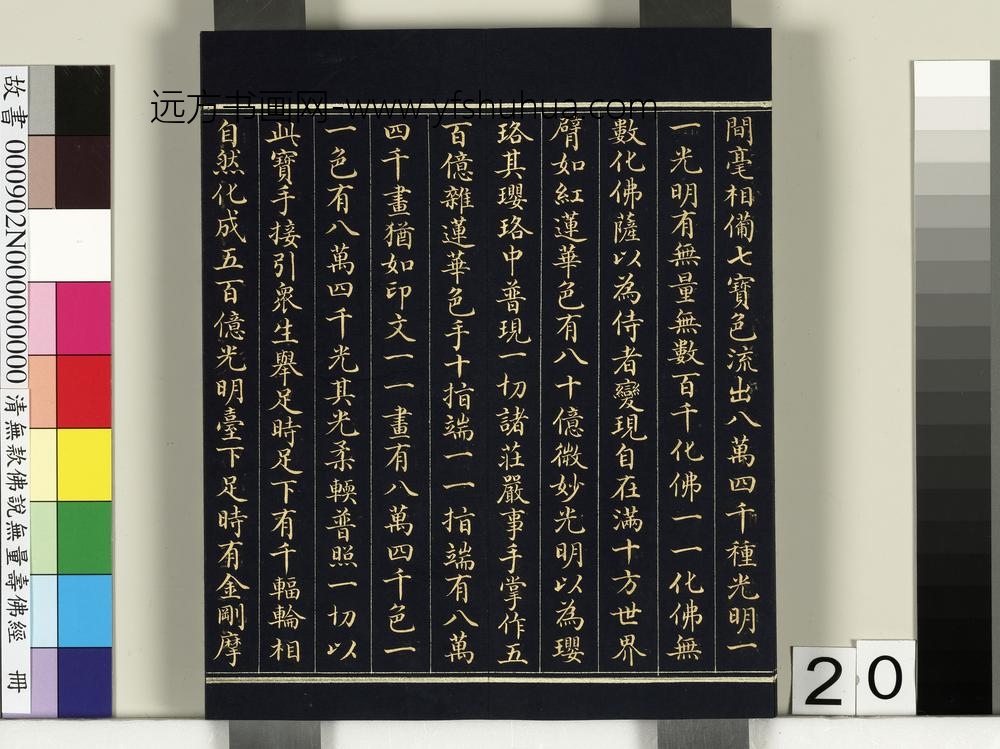 間毫相備七寶色流出八萬四千種光明一
一光明有無量無數百千化佛一一化佛無
數化佛薩以為侍者變現自在滿十方世界
臂如紅蓮華色有八十億微妙光明以為瓔
珞其瓔珞中普現一切諸莊嚴事手掌作五
百億雜蓮華色手十指端一一指端有八萬
四千畫猶如印文一一畫有八萬四千色一
一色有八萬四千光其光柔輭普照一切以
此寶手接引衆生舉足時足下有千輻輪相
自然化成五百億光明臺下足時有金剛摩
远方书画网-www.yfshuhua.com
故書 000902N000000000
清無款佛說無量壽佛經 冊
20